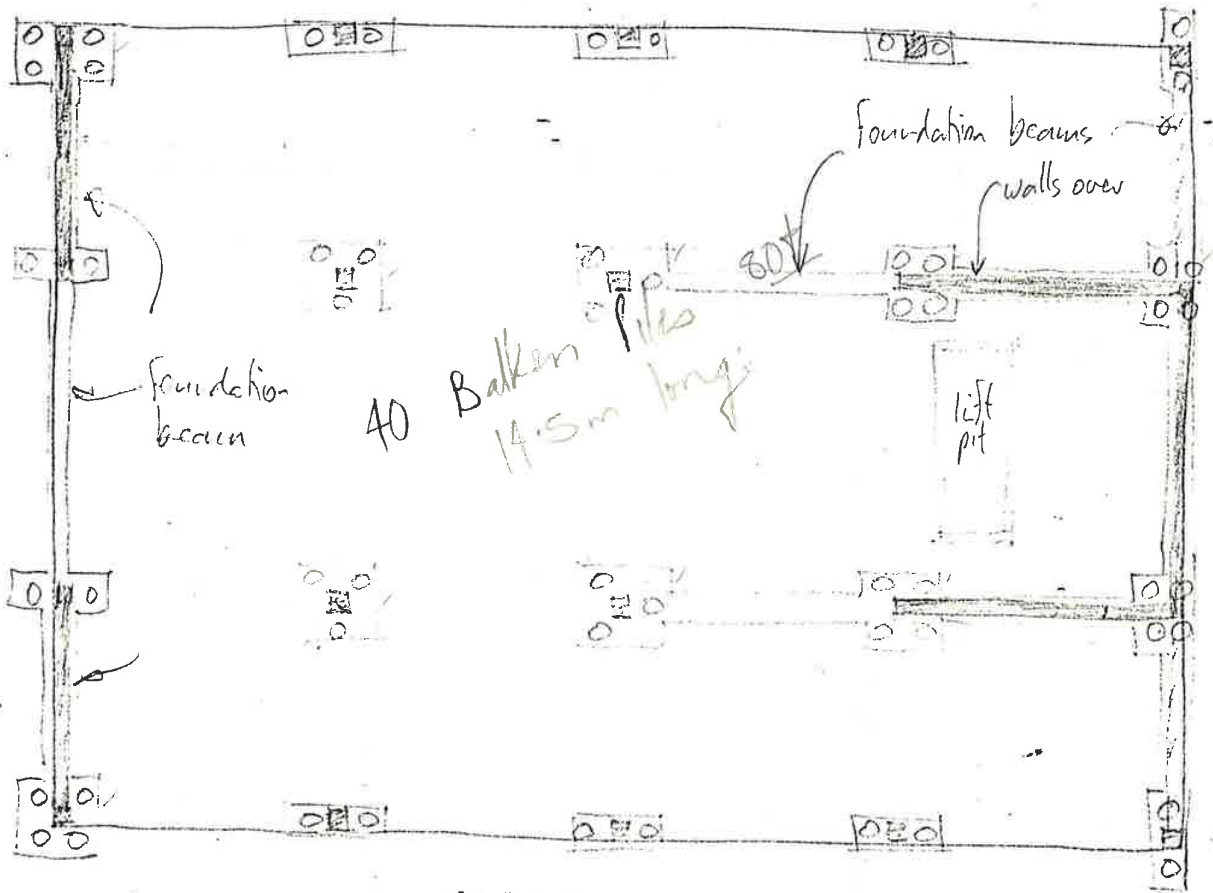 foundation beams
walls over
80t
foundation
beam
40 Balken Piles
14.5m long
lift
pit